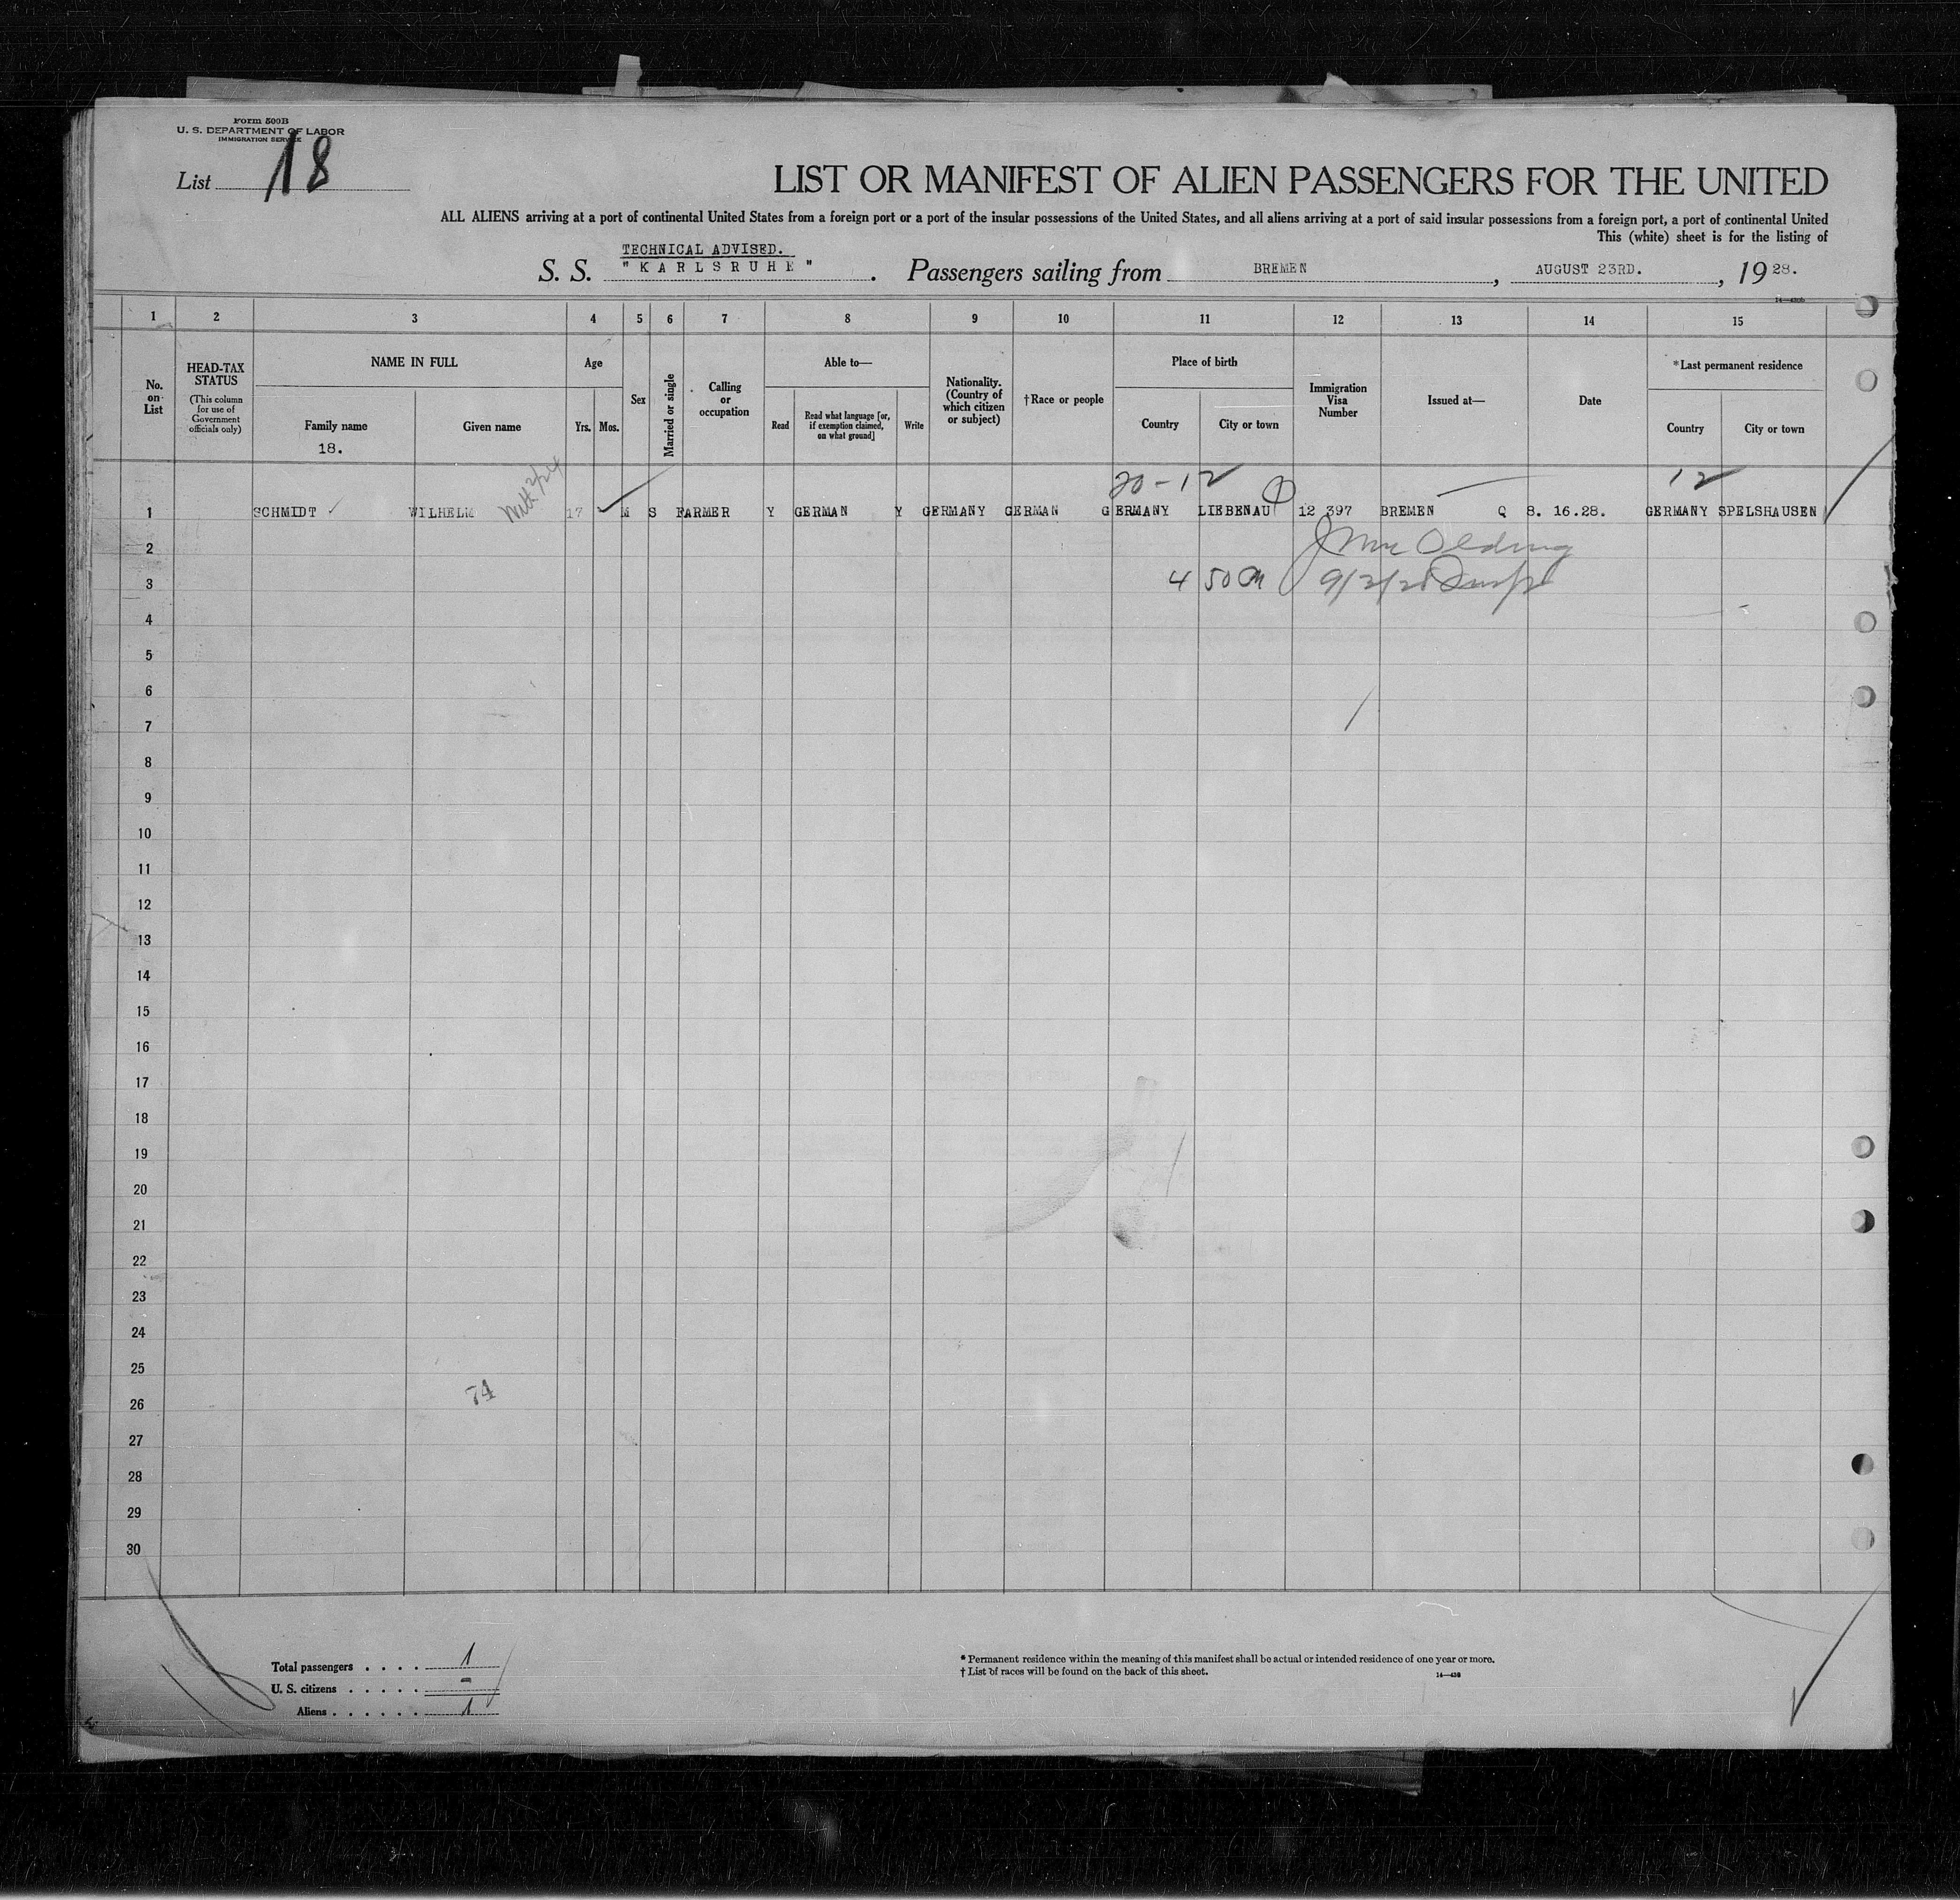 Form 500B
U. S. DEPARTMENT OF LABOR
IMMIGRATION SERVICE
List 18
LIST OR MANIFEST OF ALIEN PASSENGERS FOR THE UNITED
ALL ALIENS arriving at a port of continental United States from a foreign port or a port of the insular possessions of the United States, and all aliens arriving at a port of said insular possessions from a foreign port, a port of continental United
This (white) sheet is for the listing of
TECHNICAL ADVISED.
S. S. "KARLSRUHE". Passengers sailing from BREMEN, AUGUST 23RD., 1928.
1 2 3 4 5 6 7 8 9 10 11 12 13 14 15
No. on List
HEAD-TAX STATUS (This column for use of Government officials only)
NAME IN FULL
Family name
18.
Given name
Age
Yrs. Mos.
Sex
Married or single
Calling or occupation
Able to—
Read
Read what language [or, if exemption claimed, on what ground]
Write
Nationality. (Country of which citizen or subject)
†Race or people
Place of birth
Country
City or town
Immigration Visa Number
Issued at—
Date
*Last permanent residence
Country
City or town
20-12 12
1 SCHMIDT ✓ WILHELM 17 M S FARMER Y GERMAN Y GERMANY GERMAN GERMANY LIEBENAU 12 397 BREMEN Q 8. 16.28. GERMANY SPELSHAUSEN
2
3 4 50
4
5
6
7
8
9
10
11
12
13
14
15
16
17
18
19
20
21
22
23
24
25
74
26
27
28
29
30
Total passengers . . . . 1
U. S. citizens . . . . . -
Aliens . . . . . . 1
* Permanent residence within the meaning of this manifest shall be actual or intended residence of one year or more.
† List of races will be found on the back of this sheet.